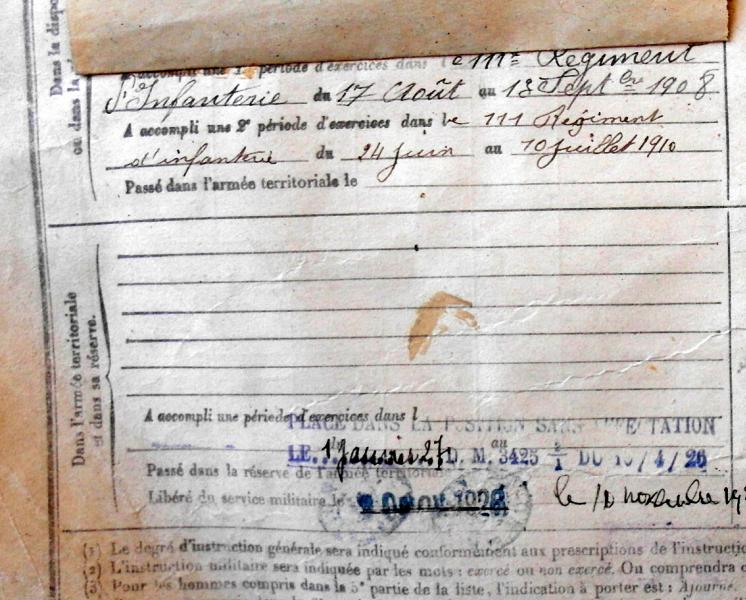 Dans la dispo
ou dans la
A accompli une 1re période d'exercices dans le 111e Régiment
d'Infanterie du 17 Août au 13 Septbre 1908
A accompli une 2e période d'exercices dans le 111 Régiment
d'infanterie du 24 juin au 10 juillet 1910
Passé dans l'armée territoriale le
Dans l'armée territoriale
et dans sa réserve.
A accompli une période d'exercices dans l
PLACÉ DANS LA POSITION SANS AFFECTATION
LE 1er Janvier 27 D. M. 3425 DU /4/26
au
Passé dans la réserve de l'armée territoriale
Libéré du service militaire le
le novembre
(1) Le degré d'instruction générale sera indiqué conformément aux prescriptions de l'instructio
(2) L'instruction militaire sera indiquée par les mots : exercé ou non exercé. On comprendra
(3) Pour les hommes compris dans la 5e partie de la liste, l'indication à porter est : Ajourné.